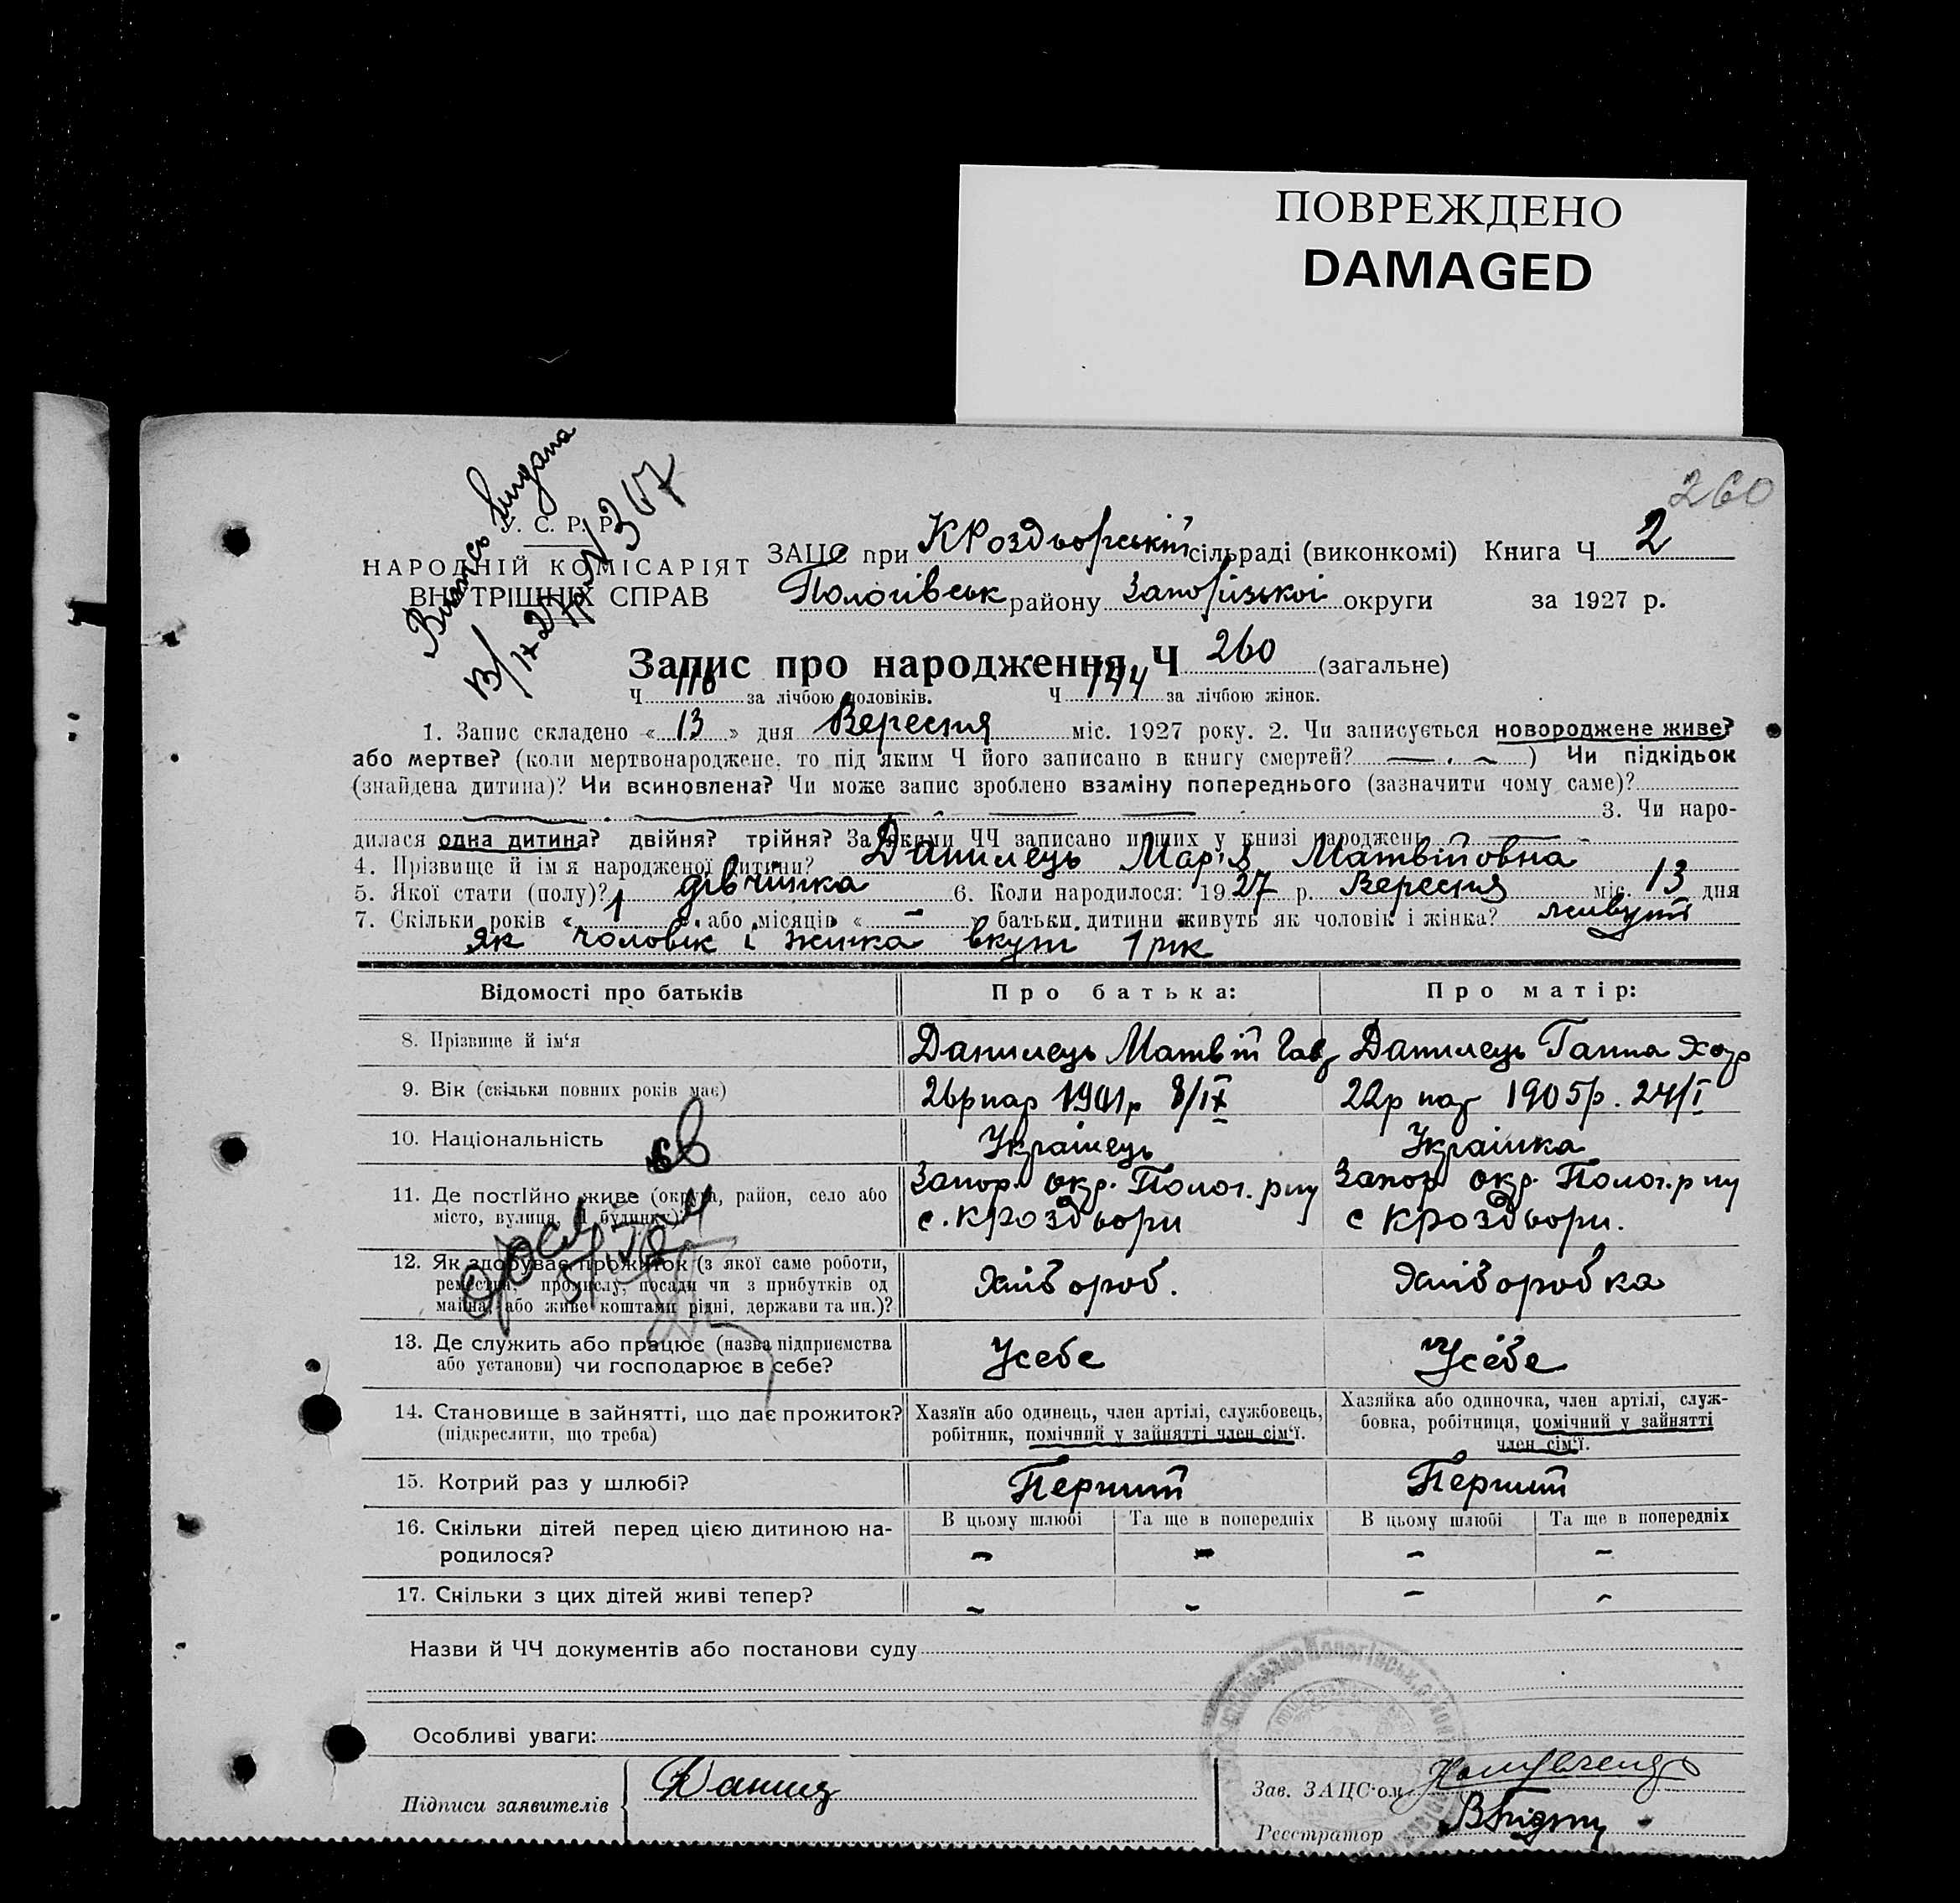 ПОВРЕЖДЕНО
DAMAGED
260
Выпись выдана
13/IX 27 р № 367
У. С. Р. Р.
НАРОДНІЙ КОМІСАРІЯТ
ВНУТРІШНІХ СПРАВ
ЗАЦС при КРоздворський сільраді (виконкомі) Книга Ч 2
Пологівськ району Запорізької округи за 1927 р.
Запис про народження Ч 260 (загальне)
Ч 116 за лічбою чоловіків. Ч 144 за лічбою жінок.
1. Запис складено « 13 » дня Вересня міс. 1927 року. 2. Чи записується новороджене живе?
або мертве? (коли мертвонароджене, то під яким Ч його записано в книгу смертей? — ) Чи підкідьок
(знайдена дитина)? Чи всиновлена? Чи може запис зроблено взаміну попереднього (зазначити чому саме)?
3. Чи наро-
дилася одна дитина? двійня? трійня? За якими ЧЧ записано инших у книзі народжень — -
4. Прізвище й ім'я народженої дитини? Данилець Мар'я Матвійовна
5. Якої стати (полу)? дівчинка 6. Коли народилося: 1927 р. Вересня міс. 13 дня
7. Скільки років « 1 » або місяців « - » батьки дитини живуть як чоловік і жінка? живуть
як чоловік і жинка вкупі 1 рік
Відомості про батьків Про батька: Про матір:
8. Прізвище й ім'я Данилець Матвій Гав Данилець Ганна
9. Вік (скільки повних років має) 26р нар 1901р 8/IX 22р нар 1905р. 24/I
10. Національність Українець Українка
11. Де постійно живе (округа, район, село або Запор. окр. Полог. р ну Запор окр. Полог. р ну
місто, вулиця, ч. будинку)? с. КРоздори с КРоздори.
12. Як здобуває прожиток (з якої саме роботи,
ремества, промислу, посади чи з прибутків од Хлібороб. Хліборобка
майна, або живе коштами рідні, держави та ин.)?
13. Де служить або працює (назва підприємства Усебе Усебе
або установи) чи господарює в себе?
14. Становище в зайнятті, що дає прожиток? Хазяїн або одинець, член артілі, службовець, Хазяйка або одиночка, член артілі, служ-
(підкреслити, що треба) робітник, помічний у зайнятті член сім'ї. бовка, робітниця, помічний у зайнятті
член сім'ї.
15. Котрий раз у шлюбі? Перший Перший
16. Скільки дітей перед цією дитиною на- В цьому шлюбі Та ще в попередніх В цьому шлюбі Та ще в попередніх
родилося? - - - -
17. Скільки з цих дітей живі тепер? - - - -
Назви й ЧЧ документів або постанови суду
Особливі уваги:
Підписи заявителів Данилец Зав. ЗАЦС'ом
Реєстратор